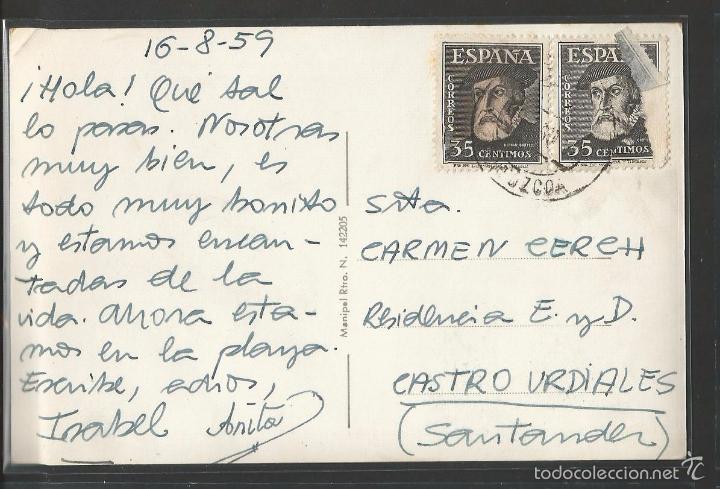 16-8-59
¡Hola! Qué tal
lo pasas. Nosotras
muy bien, es
todo muy bonito
y estamos encan-
tadas de la
vida. Ahora esta-
mos en la playa.
Escribe, adios,
Isabel Anita
Manipel Rtro. N. 142205
ESPAÑA
CORREOS
35 CENTIMOS
ESPAÑ
CORREOS
35 CENTIMOS
UZCOA
Srta.
CARMEN CERCH
Residencia E. y D.
CASTRO URDIALES
(Santander)
todocoleccion.net